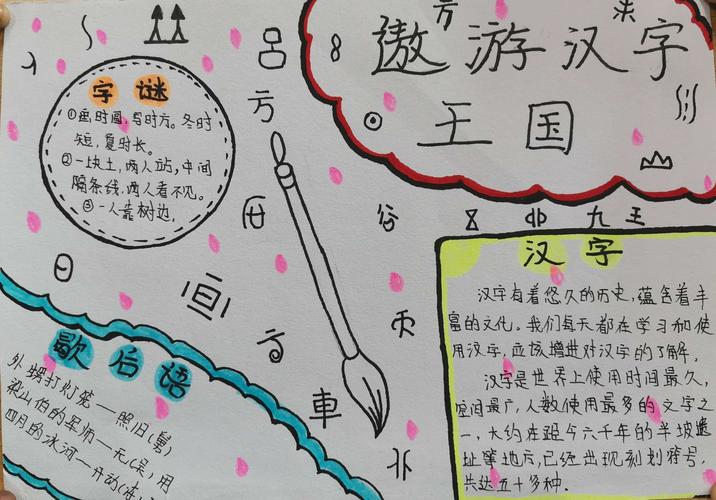 遨游汉字
王国
字谜
①画时圆,写时方。冬时
短,夏时长。
②一块土,两人站,中间
隔条线,两人看不见。
③一人靠树边,
歇后语
外甥打灯笼——照旧(舅)
梁山伯的 无(吴)用
四月的冰河——开动(冻)
汉字
汉字有着悠久的历史,蕴含着丰
富的文化。我们每天都在学习和使
用汉字,应该增进对汉字的了解,
汉字是世界上使用时间最久,
空间最广,人数使用最多的文字之
一,大约在距今六千年的半坡遗
址等地方,已经出现刻划符号,
共达五十多种.
方
日
車
九
王